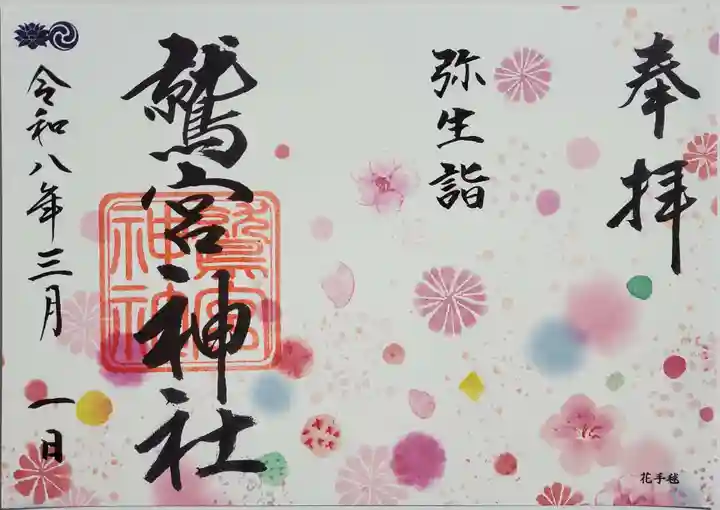 奉拝
弥生詣
鷲宮神社
鷲宮
神社
令和八年三月 一日
花手毬